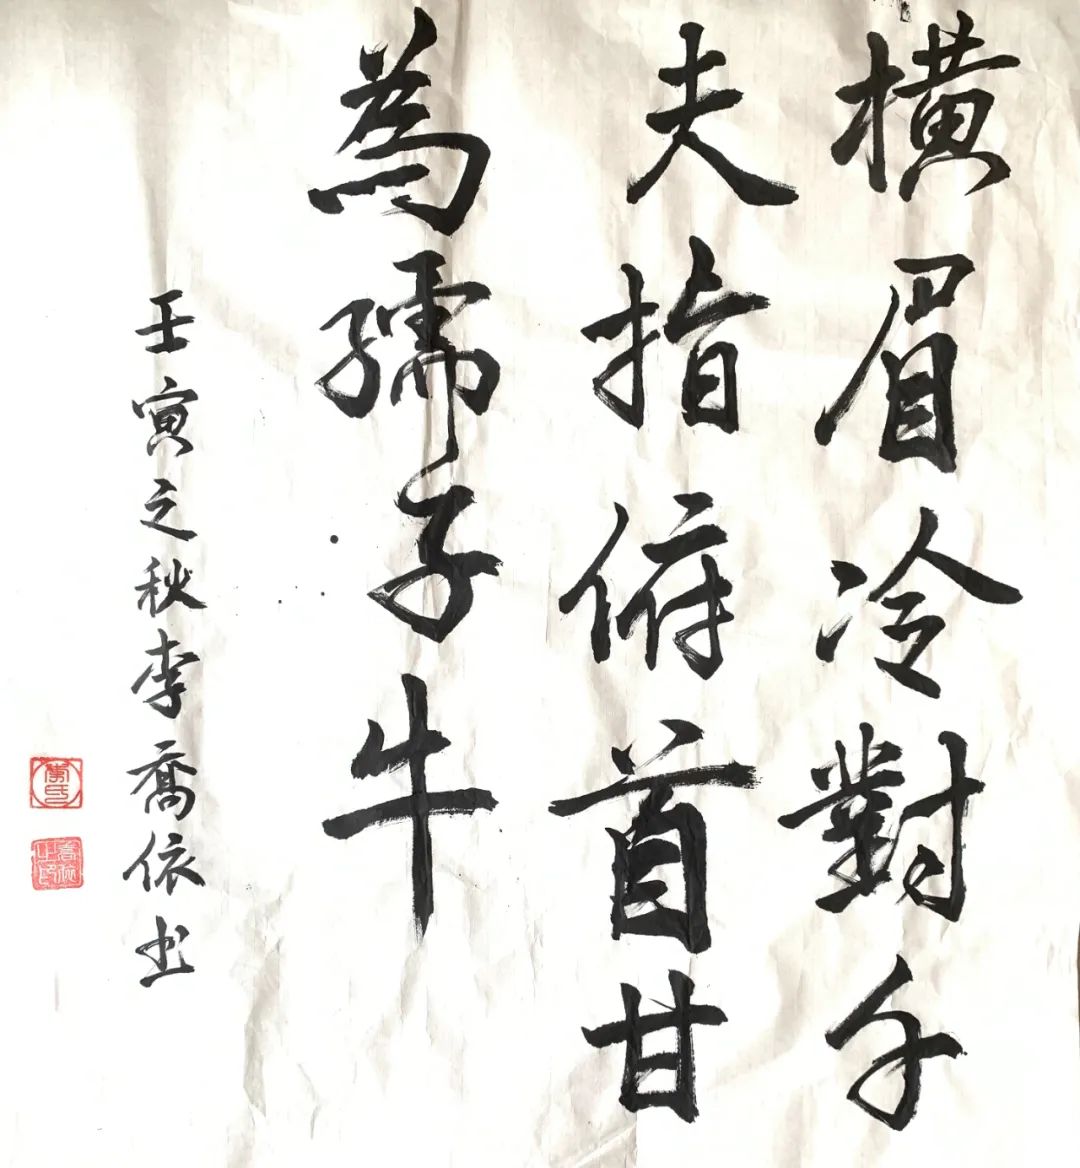 橫眉冷對千
夫指俯首甘
為孺子牛
壬寅之秋李喬依书
李氏